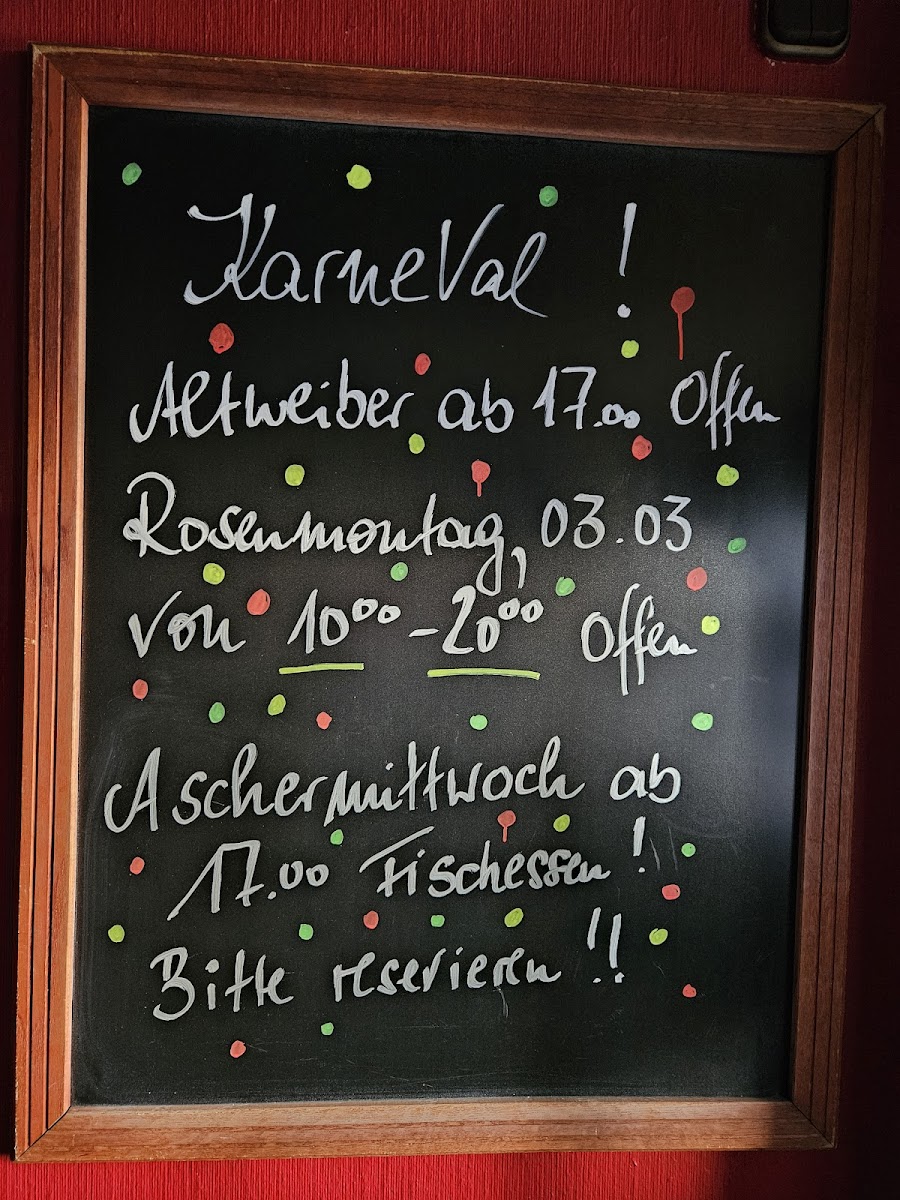 KarneVal !
Altweiber ab 17.00 Offen
Rosenmontag, 03.03
von 10⁰⁰ - 20⁰⁰ Offen
Aschermittwoch ab
17.00 Fischessen !
Bitte reservieren !!